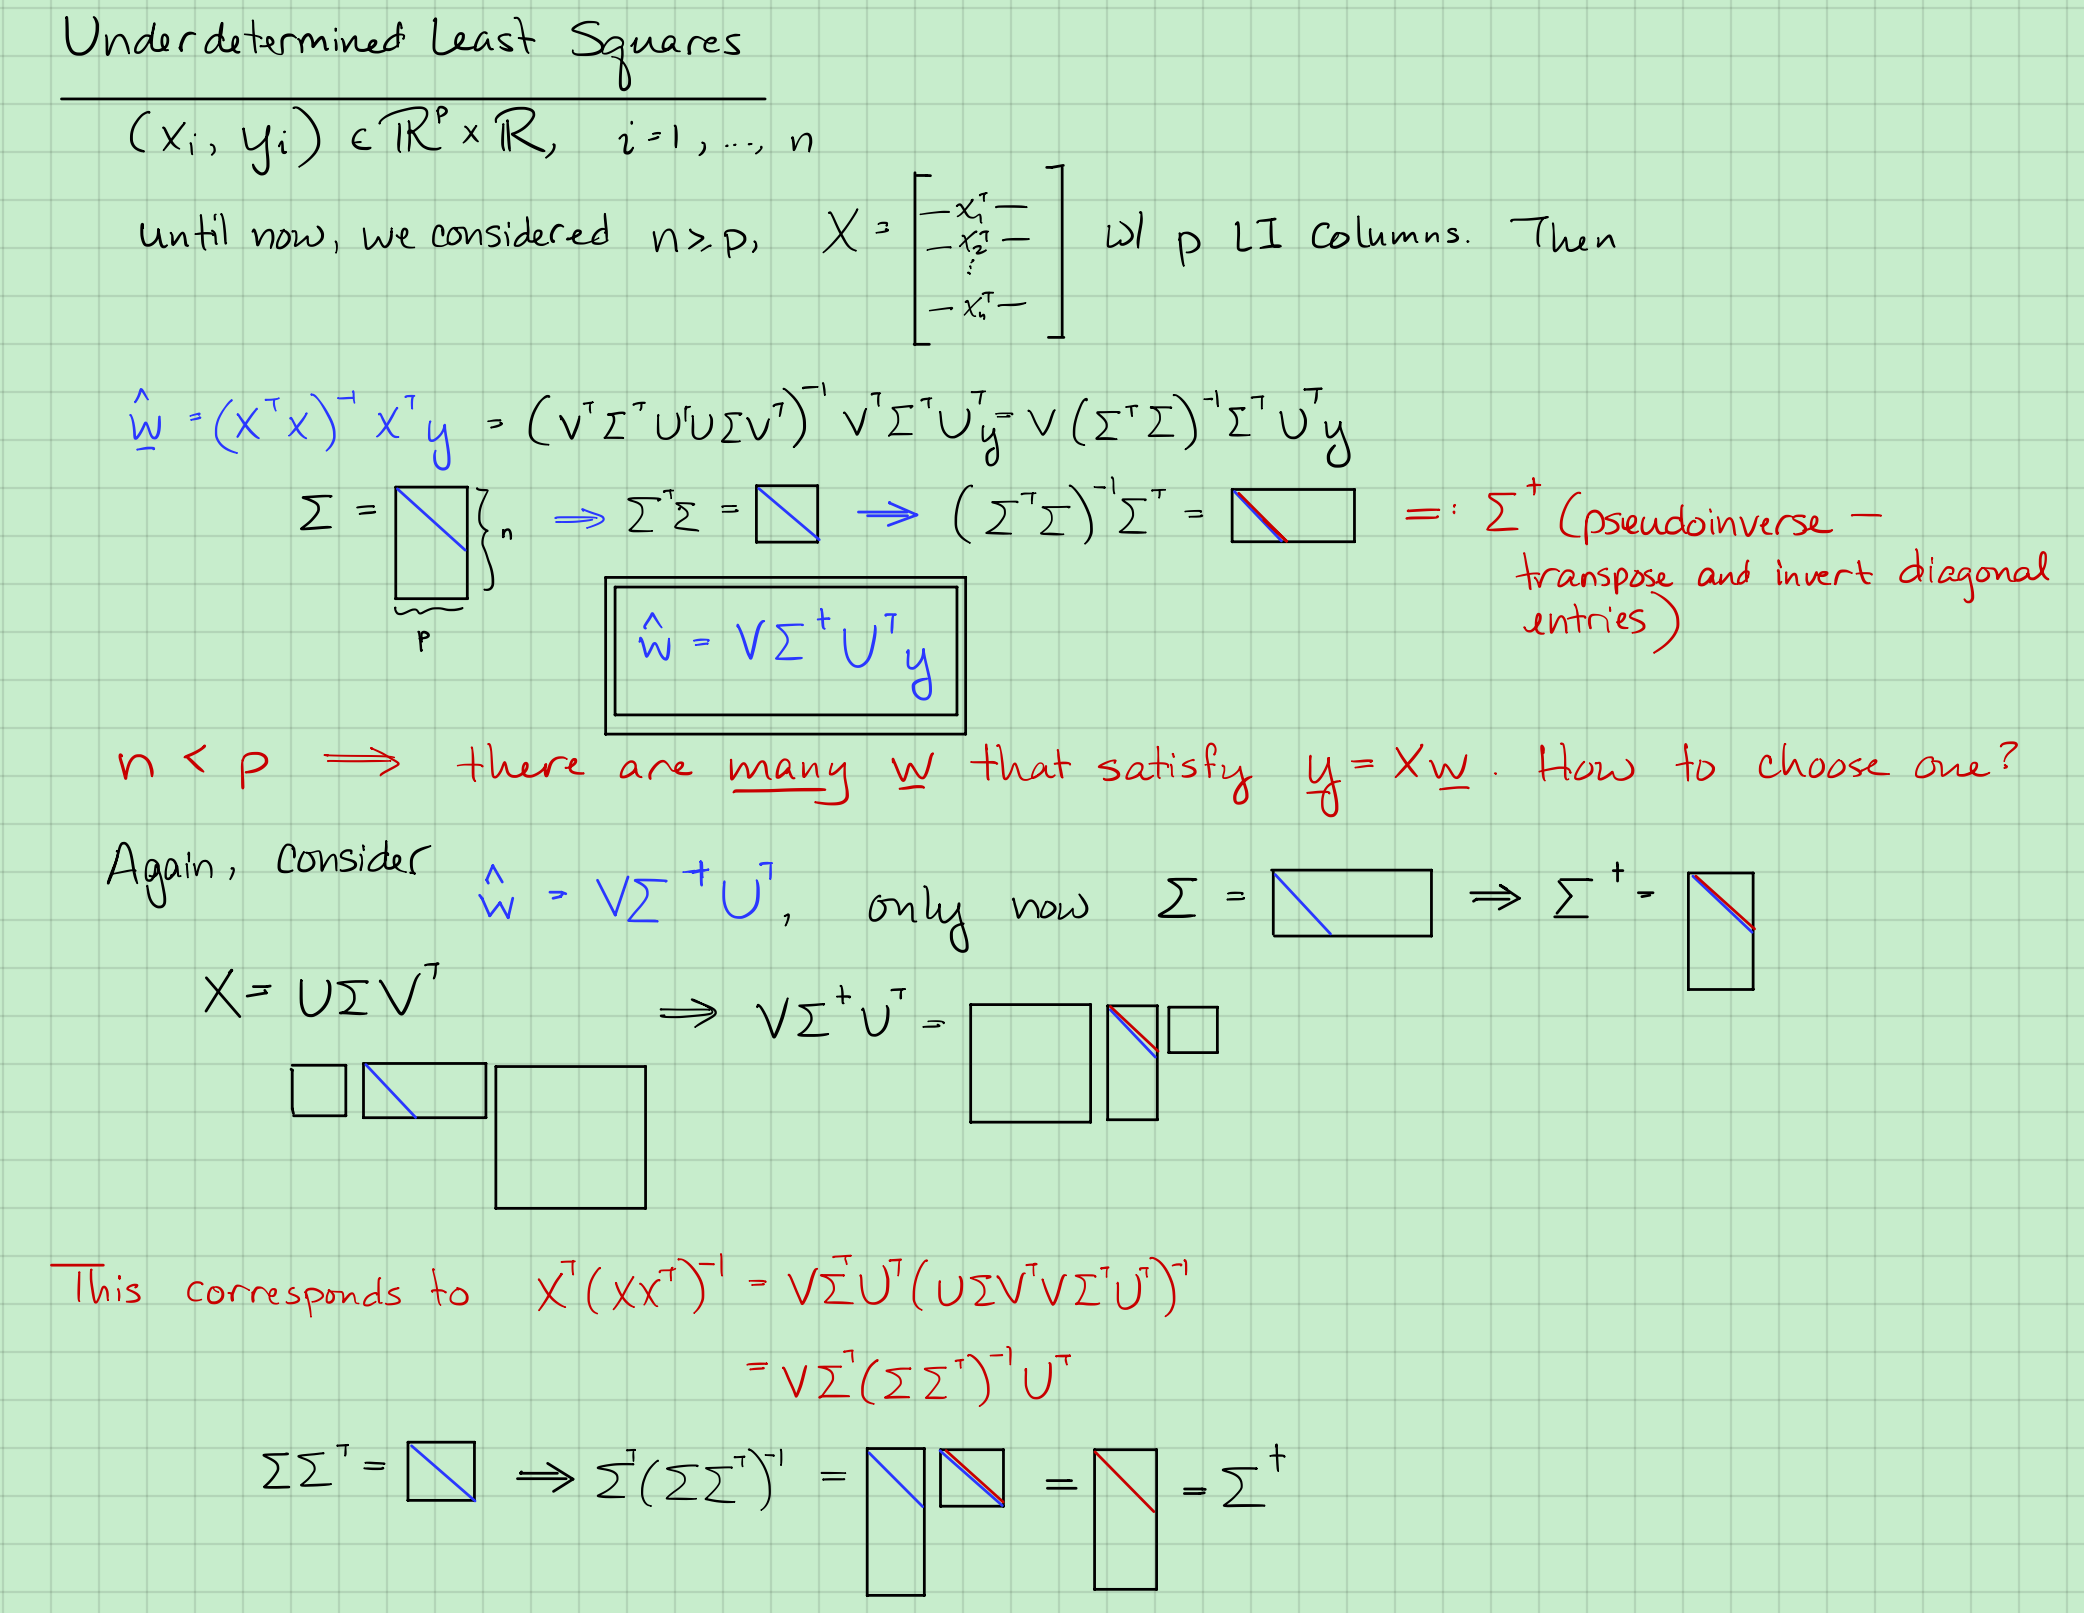 Underdetermined Least Squares
(xᵢ, yᵢ) ∈ ℝᵖ × ℝ, i = 1, ..., n
until now, we considered n ≥ p, X = [ — x₁ᵀ — — x₂ᵀ — ⋮ — xₙᵀ — ] w/ p LI columns. Then
ŵ = (XᵀX)⁻¹ Xᵀy = (VᵀΣᵀUᵀUΣVᵀ)⁻¹ VᵀΣᵀUᵀy = V(ΣᵀΣ)⁻¹ΣᵀUᵀy
Σ = } n ⇒ ΣᵀΣ = ⇒ (ΣᵀΣ)⁻¹Σᵀ = =: Σ⁺ (pseudoinverse —
transpose and invert diagonal
entries)
p
ŵ = VΣ⁺Uᵀy
n < p ⇒ there are many w that satisfy y = Xw. How to choose one?
Again, consider ŵ = VΣ⁺Uᵀ, only now Σ = ⇒ Σ⁺ =
X = UΣVᵀ ⇒ VΣ⁺Uᵀ =
This corresponds to Xᵀ(XXᵀ)⁻¹ = VΣᵀUᵀ(UΣVᵀVΣᵀUᵀ)⁻¹
= VΣᵀ(ΣΣᵀ)⁻¹Uᵀ
ΣΣᵀ = ⇒ Σᵀ(ΣΣᵀ)⁻¹ = = = Σ⁺